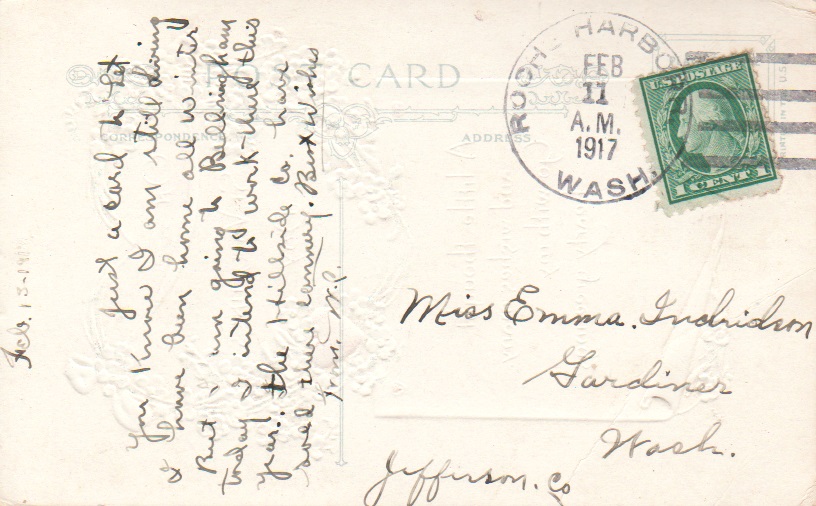 POST CARD
CORRESPONDENCE
ADDRESS
ROCHE HARBOR
FEB
11
A.M.
1917
WASH.
U.S. POSTAGE
1 CENT 1
Just a card to let
you know I am still living
I have been home all winter
But I am going to Bellingham
today I intend to work there this
year. the Hillside Co. have
there cannery. Best Wishes
from.
Miss Emma. Indridson
Gardiner
Wash.
Jefferson. Co
Feb. 13-191